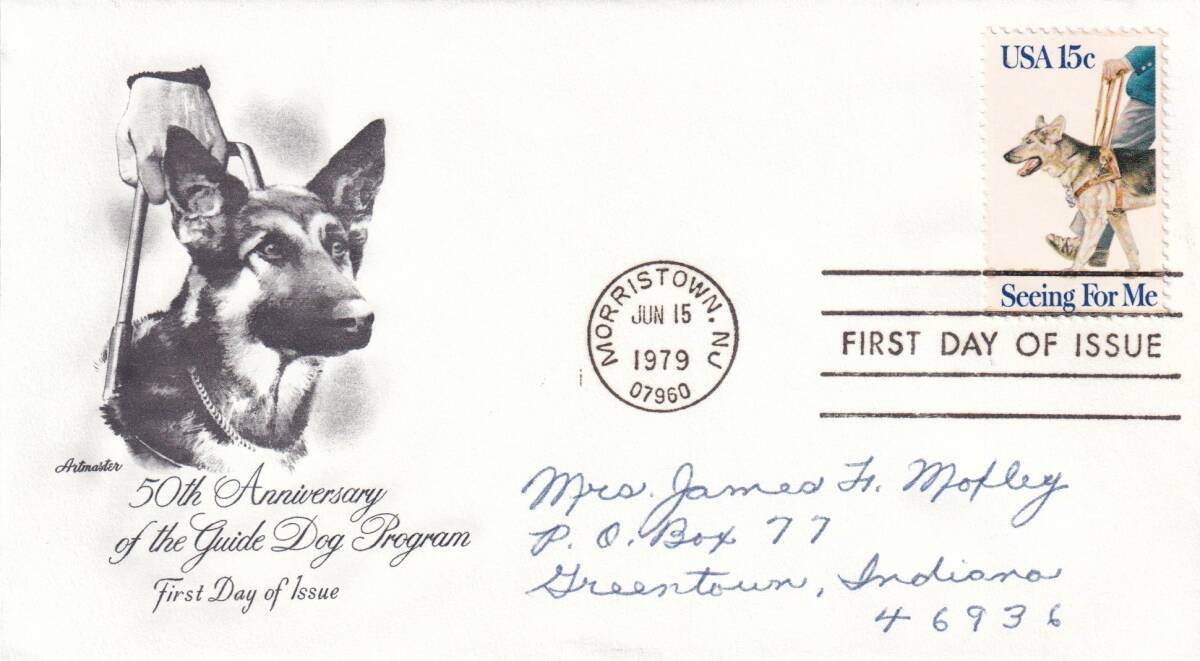 USA 15c
Seeing For Me
MORRISTOWN, NJ
JUN 15
1979
07960
FIRST DAY OF ISSUE
Artmaster
50th Anniversary
of the Guide Dog Program
First Day of Issue
Mrs. James H. Mofley
P. O. Box 77
Greentown, Indiana
46936